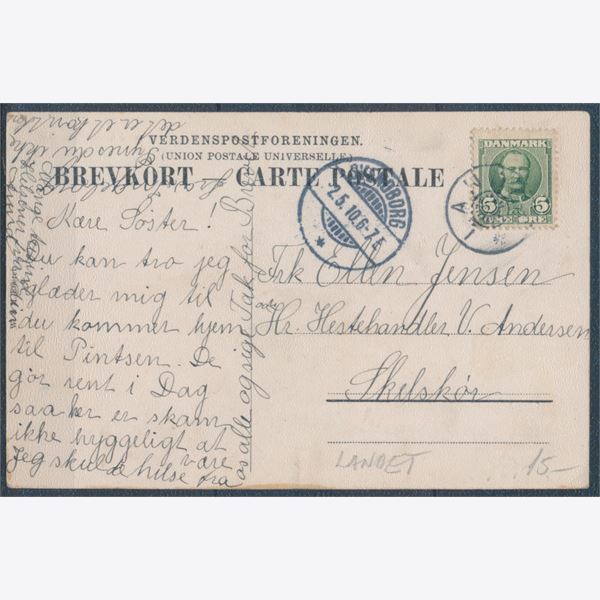 VERDENSPOSTFORENINGEN.
(UNION POSTALE UNIVERSELLE.)
BREVKORT — CARTE POSTALE
SVENDBORG
2.5.10.6-7E
DANMARK
5 5
ØRE
Kære Søster!
Du kan tro jeg
glæder mig til
du kommer hjem
til Pintsen. De
gør rent i Dag
saa her er skam
ikke hyggeligt at
være
Jeg skulde hilse fra
os alle og sige Tak for Brevet
Frk Ellen Jensen
adr
Hr. Hestehandler V. Andersen
Skelskør
LANDET
15-